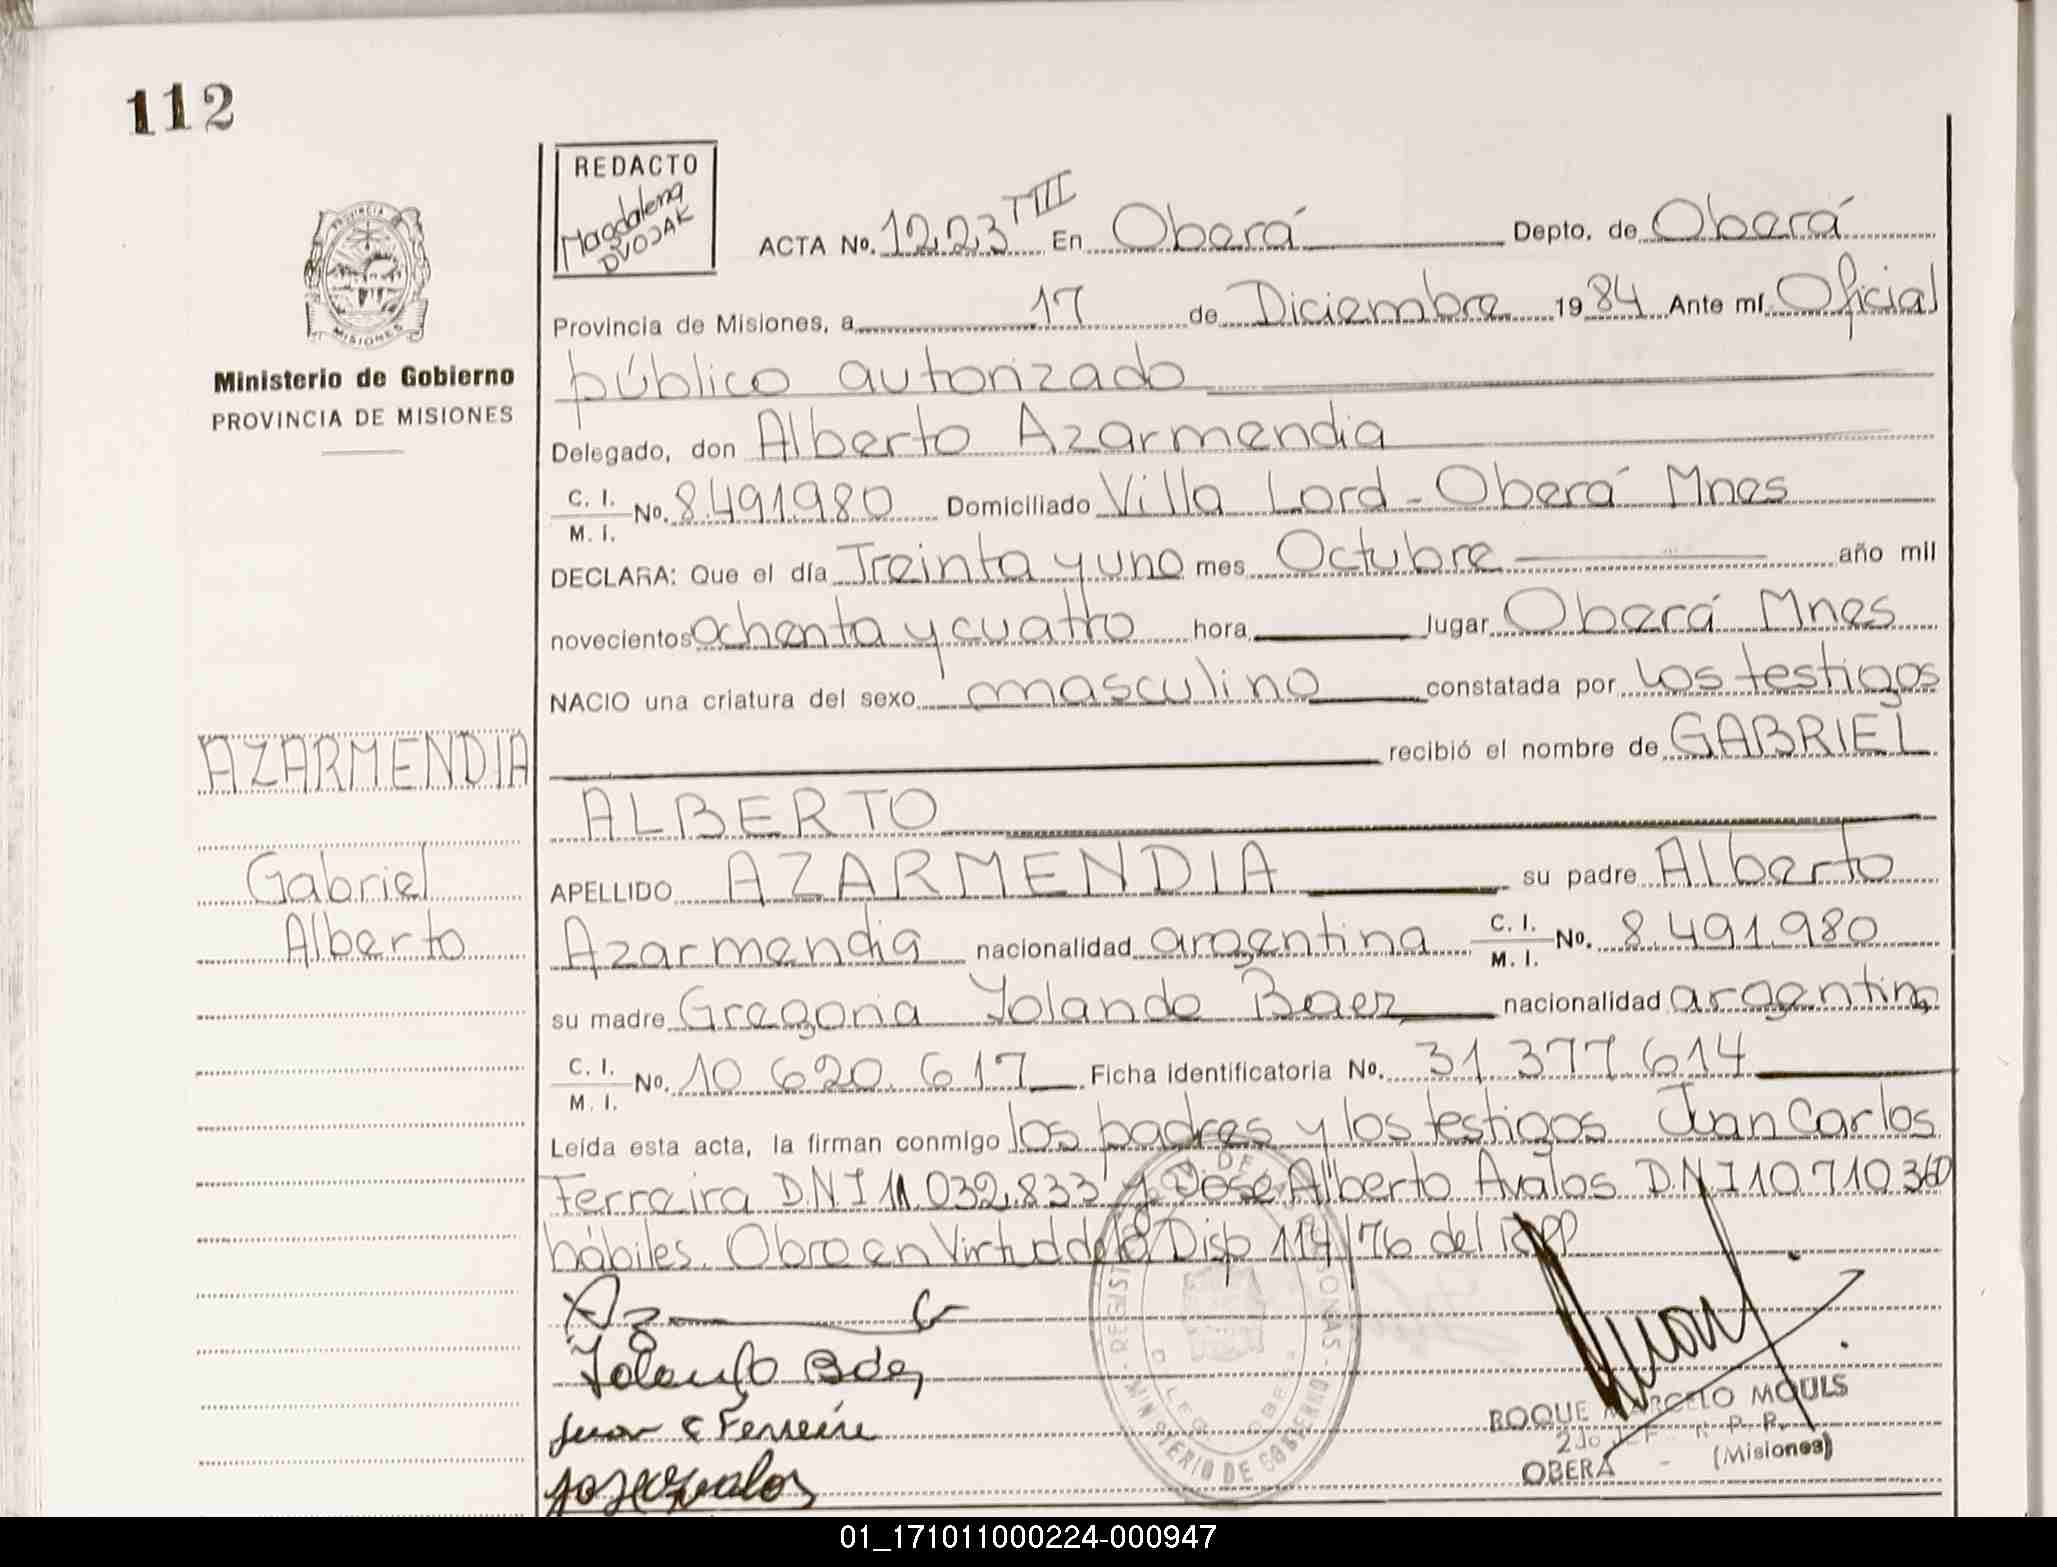 112
REDACTO
Magdalena
DVOJAK
PROVINCIA
MISIONES
Ministerio de Gobierno
PROVINCIA DE MISIONES
ACTA No. 1223 TIII En Oberá Depto. de Oberá
Provincia de Misiones, a 17 de Diciembre 1984 Ante mí Oficial
público autorizado
Delegado, don Alberto Azarmendia
C. I. M. I. No. 8.491.980 Domiciliado Villa Lord - Oberá Mnes
DECLARA: Que el día Treinta y uno mes Octubre año mil
novecientos ochenta y cuatro hora lugar Oberá Mnes
NACIO una criatura del sexo masculino constatada por los testigos
recibió el nombre de GABRIEL
ALBERTO
APELLIDO AZARMENDIA su padre Alberto
Azarmendia nacionalidad argentina C. I. M. I. No. 8.491.980
su madre Gregoria Yolanda Baez nacionalidad argentina
C. I. M. I. No. 10.620.617 Ficha identificatoria No. 31.377.614
Leída esta acta, la firman conmigo los padres y los testigos Juan Carlos
Ferreira D.N.I 11.032.833 y José Alberto Avalos D.N.I 10.710.360
hábiles. Obro en Virtud de la Disp 114/76 del RPP
AZARMENDIA
Gabriel
Alberto
Yolanda Baez
Juan C Ferreira
José Avalos
MINISTERIO DE GOBIERNO
ROQUE MARCELO MOULS
2do
OBERA - (Misiones)
01_171011000224-000947